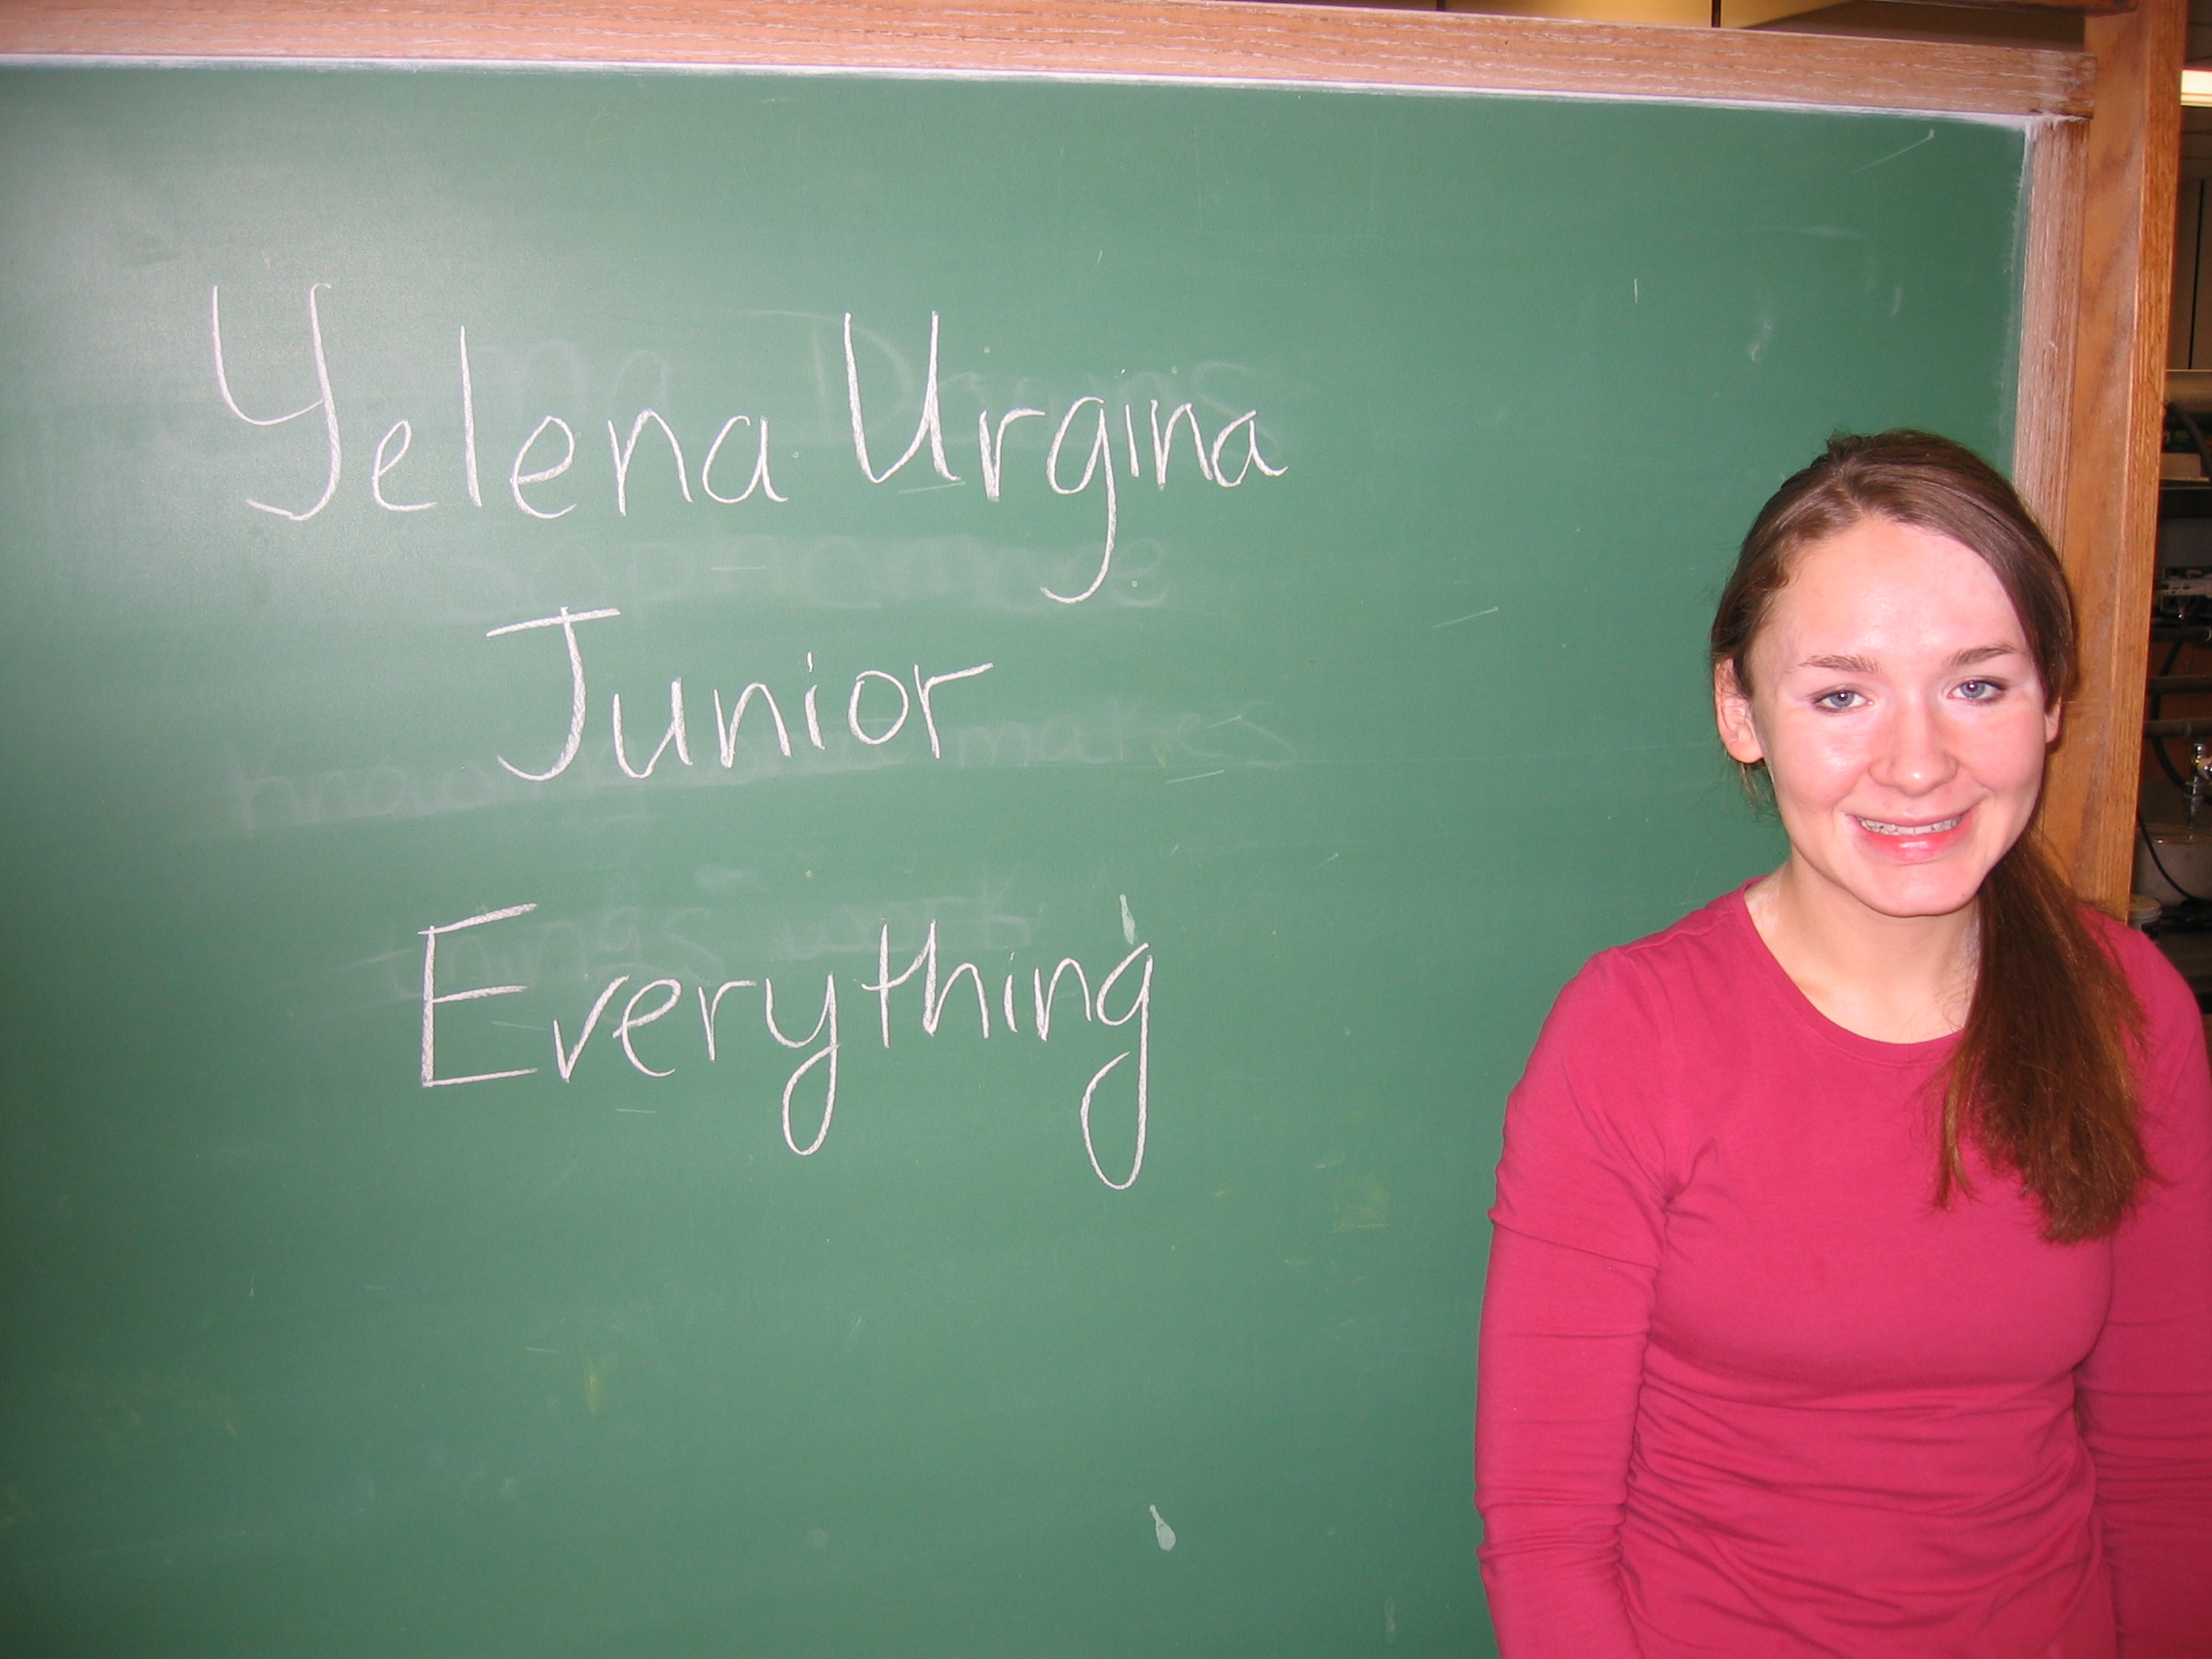 Yelena Urgina
Junior
Everything